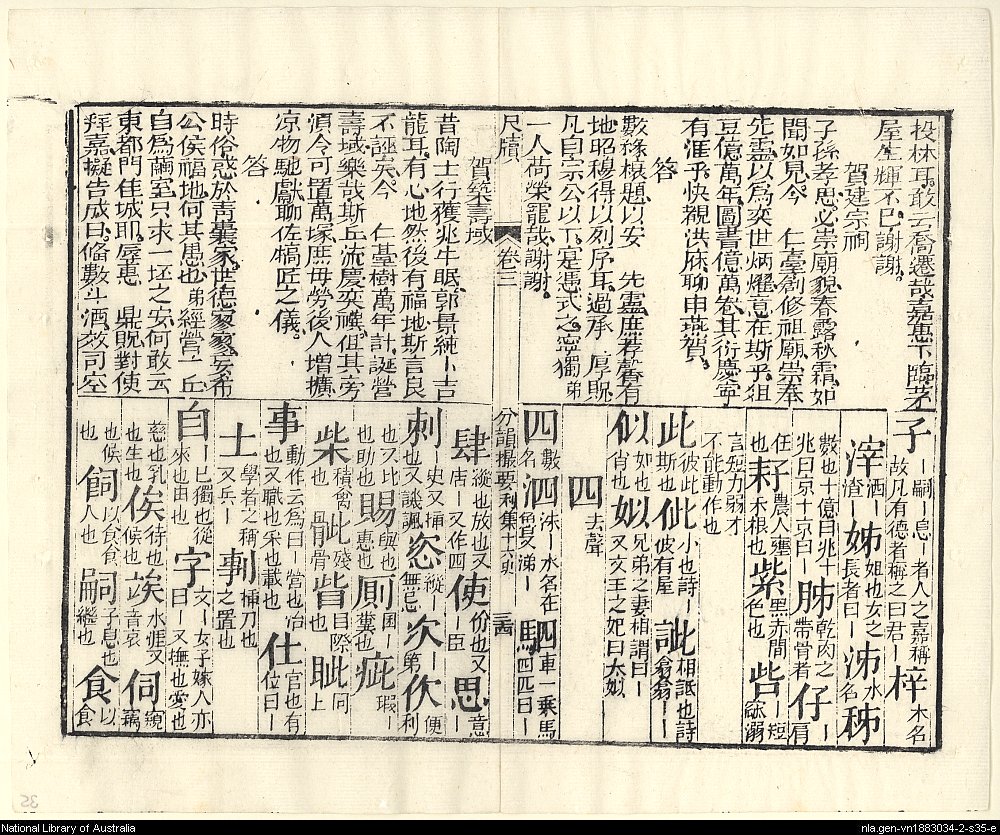 投林耳敢云喬遷哉嘉惠下臨茅
屋生輝不已謝謝
賀建宗祠
子孫孝思必崇廟貌春露秋霜如
聞如見今 仁臺創修祖廟崇奉
先靈以為奕世炳耀意在斯乎俎
豆億萬年圖書億萬卷其衍慶寧
有涯乎快覩洪庥聊申燕賀
答
數椽榱題以安 先靈庶 馨有
地昭穆得以列序耳過承 厚貺
凡自宗公以下是憑式之寧獨弟
一人荷榮寵哉謝謝
尺牘 卷三
賀築壽域
昔陶士行獲兆牛眠郭景純卜吉
龍耳有心地然後有福地斯言良
不誣矣今 仁臺樹萬年計誕營
壽域樂哉斯丘流慶奕禩但其旁
須令可置萬塚庶毋勞後人增擴
凉物馳獻聊佐犒匠之儀
答
時俗惑於青囊家世德寥寥妄希
公侯福地何其愚也弟經營一丘
自為繭室只求一坯之安何敢云
東都門佳城即辱惠 鼎貺對使
拜嘉擬告成日備數斗酒效司空
子｜嗣｜息｜者人之嘉稱故凡有德者稱之曰君｜梓木名
滓洒｜渣｜姊｜姐也女之長者曰｜泲水名秭
數也十億曰兆十兆曰京十京曰｜胏乾肉之帶骨者仔｜肩
任也耔農人壅禾根也紫黑赤間色也呰｜短窳溺
言短力弱才不能動作也
此彼此此斯也佌小也詩｜彼有屋訿相詆也詩翕翕｜｜
似如也｜肖也姒兄弟之妻相謂曰｜又文王之妃曰太姒
四 去聲
四數名泗洙｜水名在魯又涕｜駟車一乘馬四匹曰｜
分韻撮要利集十六史 三五
肆縱也放也又店｜又作四使｜臣份也又思意｜
刺｜史又插也又譏諷恣縱｜無忌次｜弟佽便利
也又比也助也賜與也惠也厠圊｜糞也疵瑕｜
柴積禽也 殘骨眥目際也眦同上
事動作云為曰｜營也治也又職也采也載也仕官也有位曰｜
士學者之稱又兵｜剚插刀也｜之置也
自｜已獨也從來也由也字文｜女子嫁人亦曰｜又撫也愛也
慈也乳也生也俟待也又候也竢水涯又音哀伺窺也竊
也候也飼以食食人也嗣子息也繼也食以食
National Library of Australia
nla.gen-vn1883034-2-s35-e
35